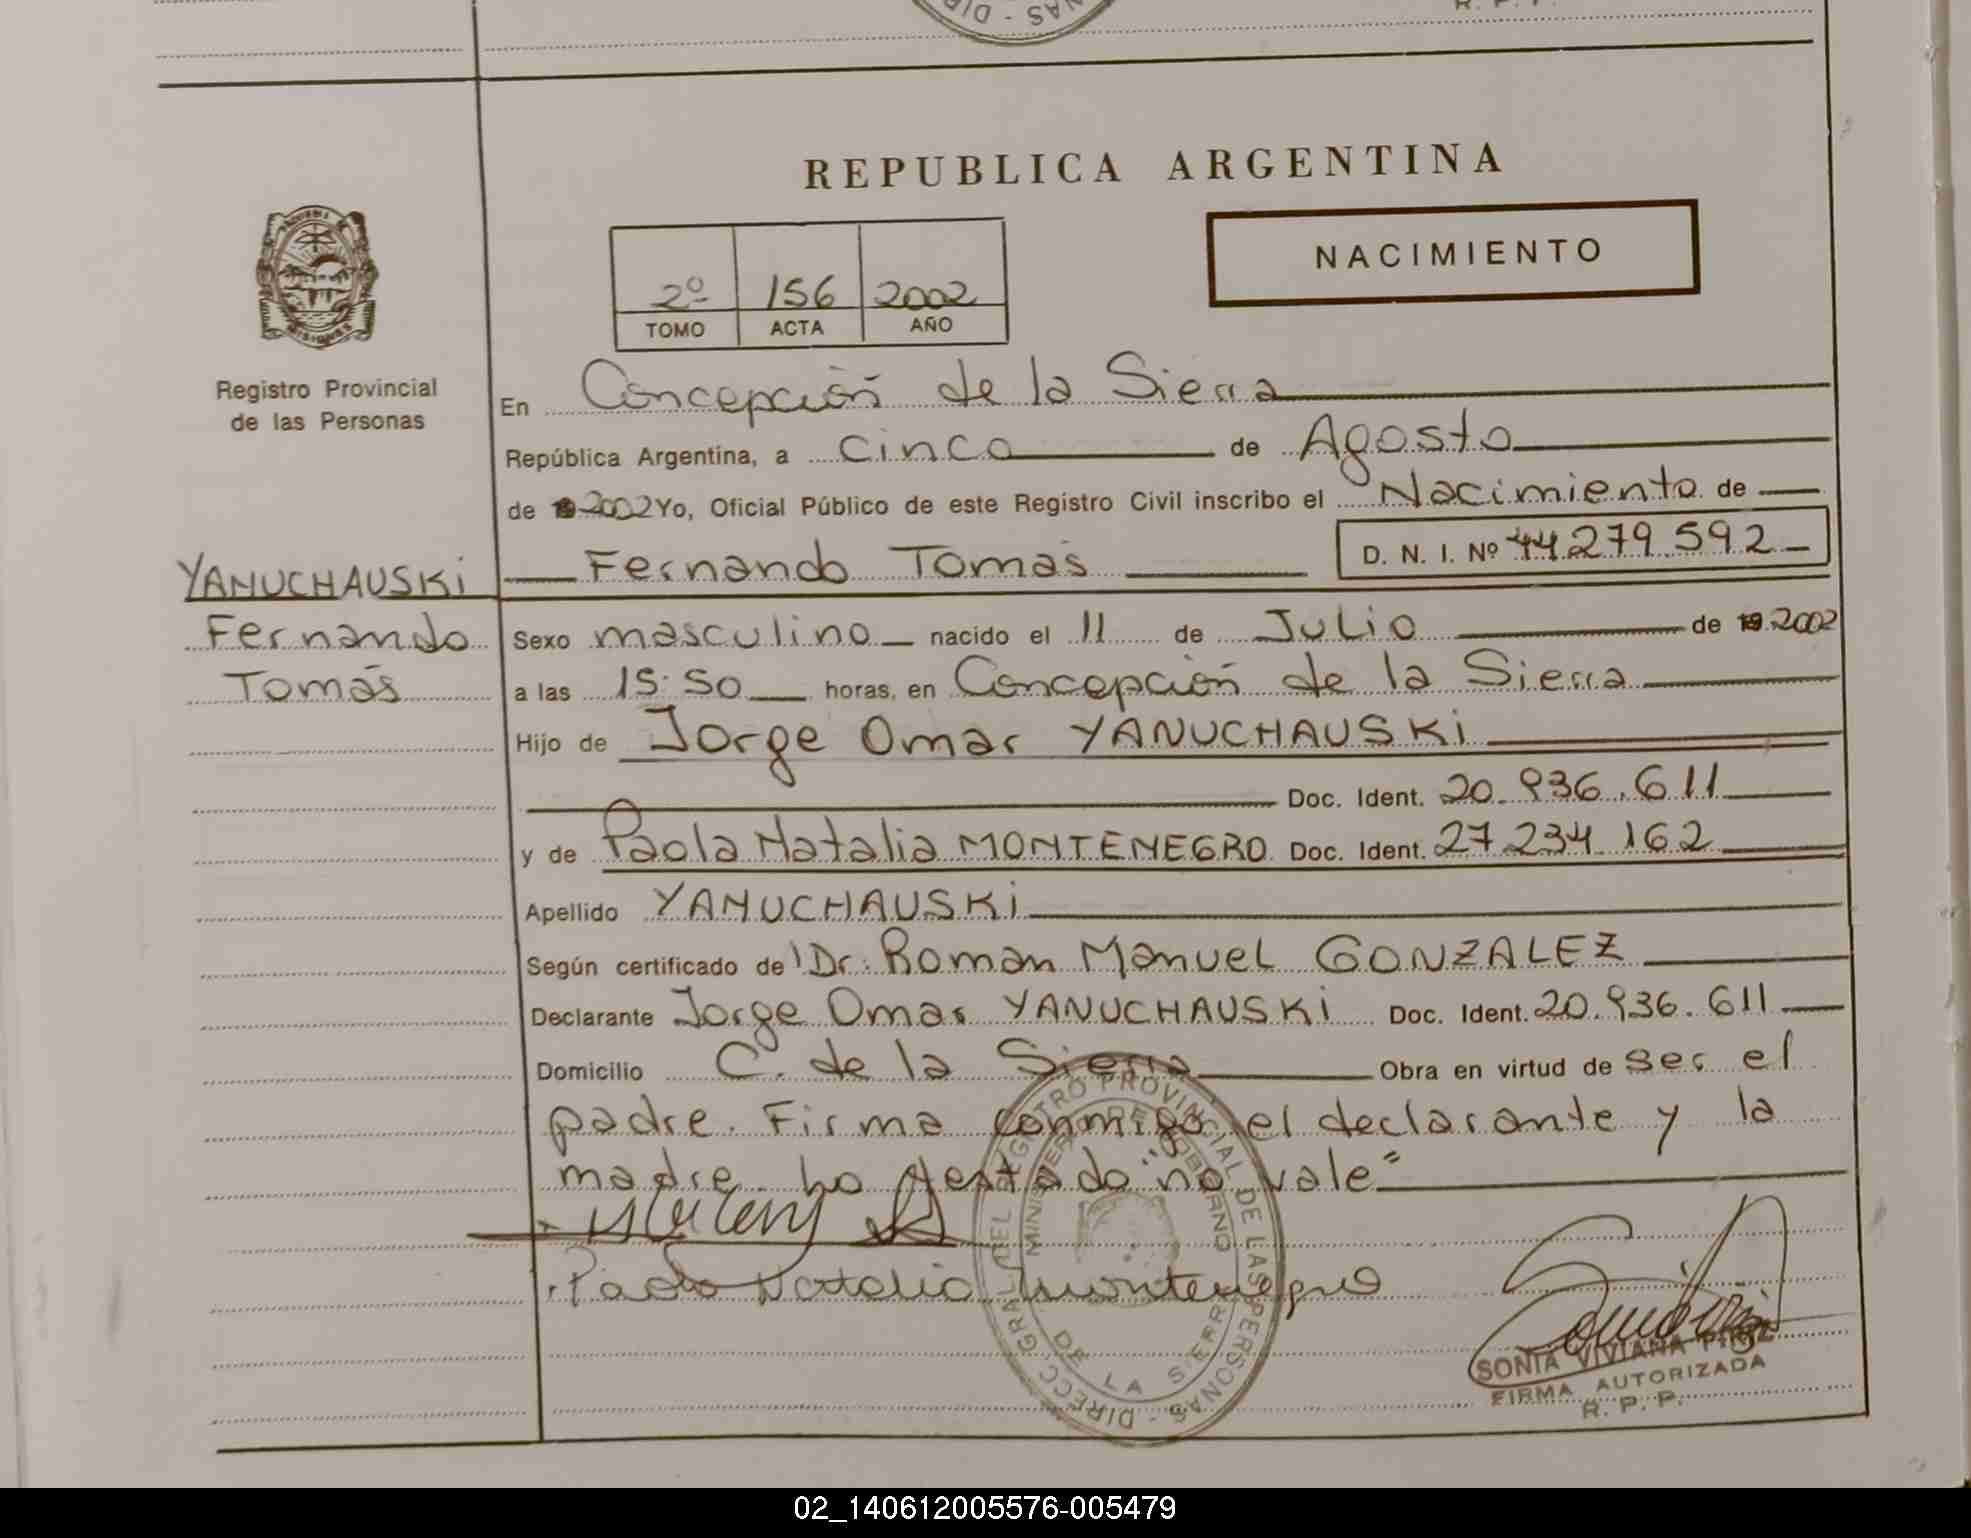 REPUBLICA ARGENTINA
NACIMIENTO
2º 156 2002
TOMO ACTA AÑO
Registro Provincial
de las Personas
En Concepción de la Sierra
República Argentina, a cinco de Agosto
de 19 2002 Yo, Oficial Público de este Registro Civil inscribo el Nacimiento de
Fernando Tomás D. N. I. Nº 44.279.592
YANUCHAUSKi
Fernando
Tomás
Sexo masculino nacido el 11 de Julio de 19 2002
a las 15:50 horas, en Concepción de la Sierra
Hijo de Jorge Omar YANUCHAUSKi
Doc. Ident. 20.936.611
y de Paola Natalia MONTENEGRO Doc. Ident. 27.234.162
Apellido YANUCHAUSKi
Según certificado de Dr. Roman Manuel GONZALEZ
Declarante Jorge Omar YANUCHAUSKi Doc. Ident. 20.936.611
Domicilio C. de la Sierra Obra en virtud de ser el
padre. Firma conmigo el declarante y la
madre. Lo testado "no vale"
Paola Natalia Montenegro
DIRECC. GRAL. DEL REGISTRO PROVINCIAL DE LAS PERSONAS
MINISTERIO DE GOBIERNO
DE LA SIERRA
SONIA VIVIANA
FIRMA AUTORIZADA
R. P. P.
02_140612005576-005479